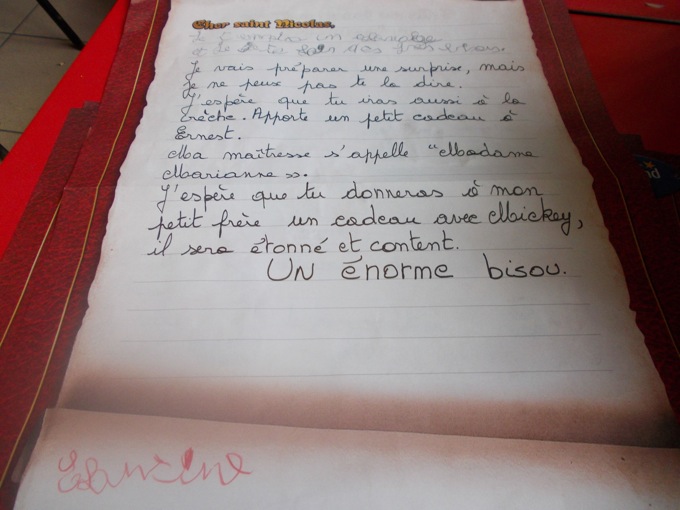 Cher saint Nicolas,
un
et de
Je vais préparer une surprise, mais
je ne peux pas te la dire.
J'espère que tu iras aussi à la
crèche. Apporte un petit cadeau à
Ernest.
Ma maîtresse s'appelle "Madame
Marianne ».
J'espère que tu donneras à mon
petit frère un cadeau avec Mickey,
il sera étonné et content.
UN énorme bisou.